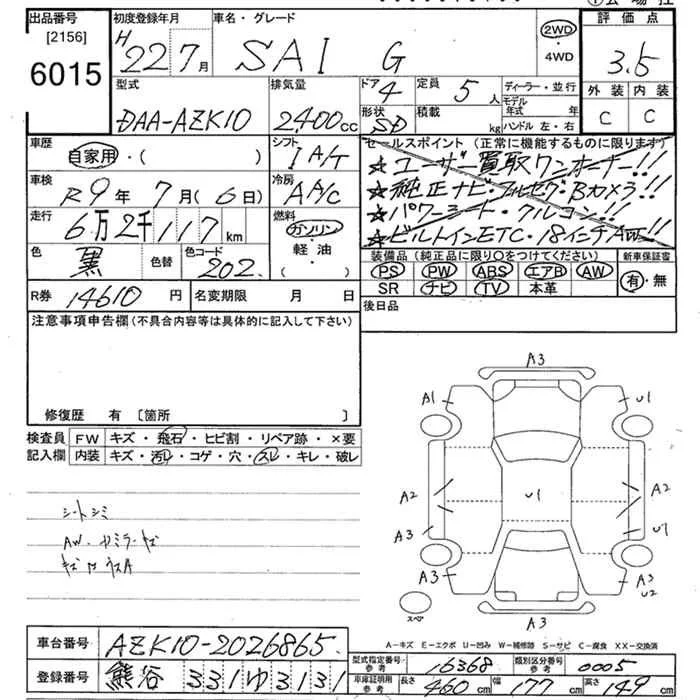 出品番号 初度登録年月 車名・グレード 評価点
[2156]
6015
H 22 7月 SAI G 2WD・4WD 3.5
型式 排気量 ドア 4 定員 5人 ディーラー・並行 外装 内装
DAA-AZK10 2400cc 形状 SD 積載 kg モデル年式 年 C C
ハンドル 左・右
車歴 自家用・( ) シフト IA/T セールスポイント (正常に機能するものに限ります)
★ユーザー買取ワンオーナー!!
車検 R9年 7月(6日) 冷房 AA/C ★純正ナビ・フルセグ・Bカメラ!!
走行 6万2千117km 燃料 ガソリン・軽油 ★パワーシート・クルコン!!
★ビルトインETC・18インチAW!!
色 黒 色替 色コード 202 ( ) 装備品 (純正品に限り○をつけてください) 新車保証書
PS PW ABS エアB AW 有・無
SR ナビ TV 本革
R券 14610円 名変期限 月 日 後日品
注意事項申告欄 (不具合内容等は具体的に記入して下さい)
修復歴 有 [箇所 ]
検査員 FW キズ・飛石・ヒビ割・リペア跡・×要
記入欄 内装 キズ・汚レ・コゲ・穴・スレ・キレ・破レ
シートシミ
AW・
A3
A1 U1
A2 U1 A2
A3 U7
A3 A3
U2
スペア
A3
A-キズ E-エクボ U-凹み W-補修跡 S-サビ C-腐食 XX-交換済
車台番号 AZK10-2026865
登録番号 熊谷 331ゆ3131
型式指定番号 参考 16368 類別区分番号 参考 0005
車庫証明用 参考 長さ 460cm 幅 177cm 高さ 149cm